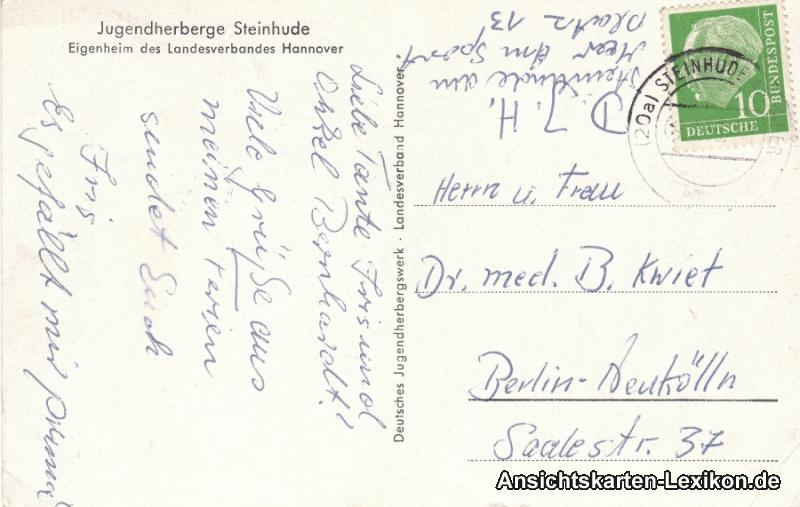 Jugendherberge Steinhude
Eigenheim des Landesverbandes Hannover
Liebe Tante Iris und
Onkel Bernhardt!
Viele Grüße aus
meinen Ferien
sendet Euch
Iris
Es gefällt mir prima
Deutsches Jugendherbergswerk · Landesverband Hannover
D. J. H.
Steinhude am
Meer Am Sport-
platz 13
(20a) STEINHUDE
10
DEUTSCHE
BUNDESPOST
Herrn u. Frau
Dr. med. B. Kwiet
Berlin-Neukölln
Saalestr. 37
Ansichtskarten-Lexikon.de